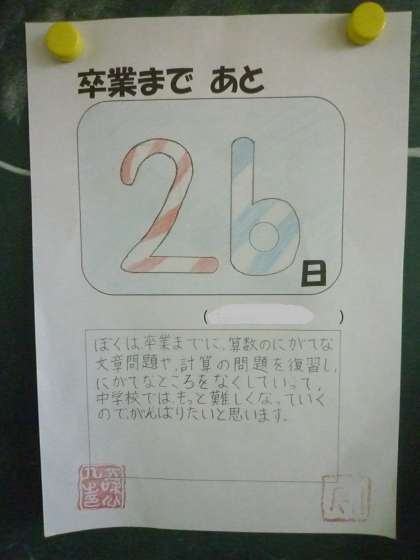 卒業まで あと
26
日
( )
ぼくは、卒業までに、算数のにがてな
文章問題や、計算の問題を復習し、
にがてなところをなくしていって、
中学校では、もっと難しくなっていく
ので、がんばりたいと思います。